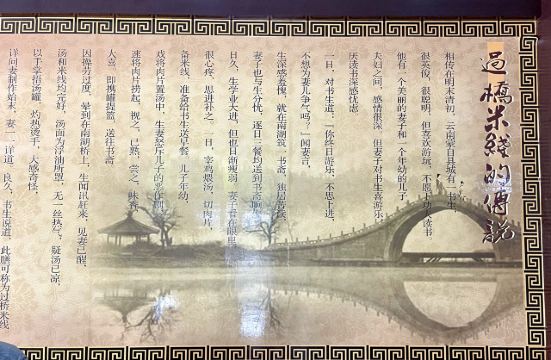 過橋米綫的傳説
相传在明末清初，云南蒙自县城有一书生，
很英俊，很聪明，但喜欢游玩，不愿下功夫读书
他有一个美丽的妻子和一个年幼的儿子，
夫妇之间，感情很深，但妻子对书生喜游乐、
厌读书深感忧虑
一日，对书生道："你终日游乐，不思上进，
不想为妻儿争气吗？"闻妻言，
生深感羞愧，就在南湖筑一书斋，独居苦读，
妻子也与生分忧，逐日三餐均送到书斋
日久，生学业大进，但也日渐瘦弱，妻子看在眼里
很心疼，思进补之。一日，宰鸡煨汤，切肉片，
备米线，准备给书生送早餐，儿子年幼，
戏将肉片置汤中，生妻怒斥儿子的恶作剧，
速将肉片捞起，视之，已熟，尝之，味香，
大喜，即携罐提篮，送往书斋
因操劳过度，晕到在南湖桥上，生闻讯赶来，见妻已醒，
汤和米线均完好，汤面为浮油所盟，无一丝热气，疑汤已凉，
以手掌捂汤罐，灼热烫手，大感奇怪，
详问妻制作始末，妻一一详道，良久，书生说道，此膳可称为过桥米线